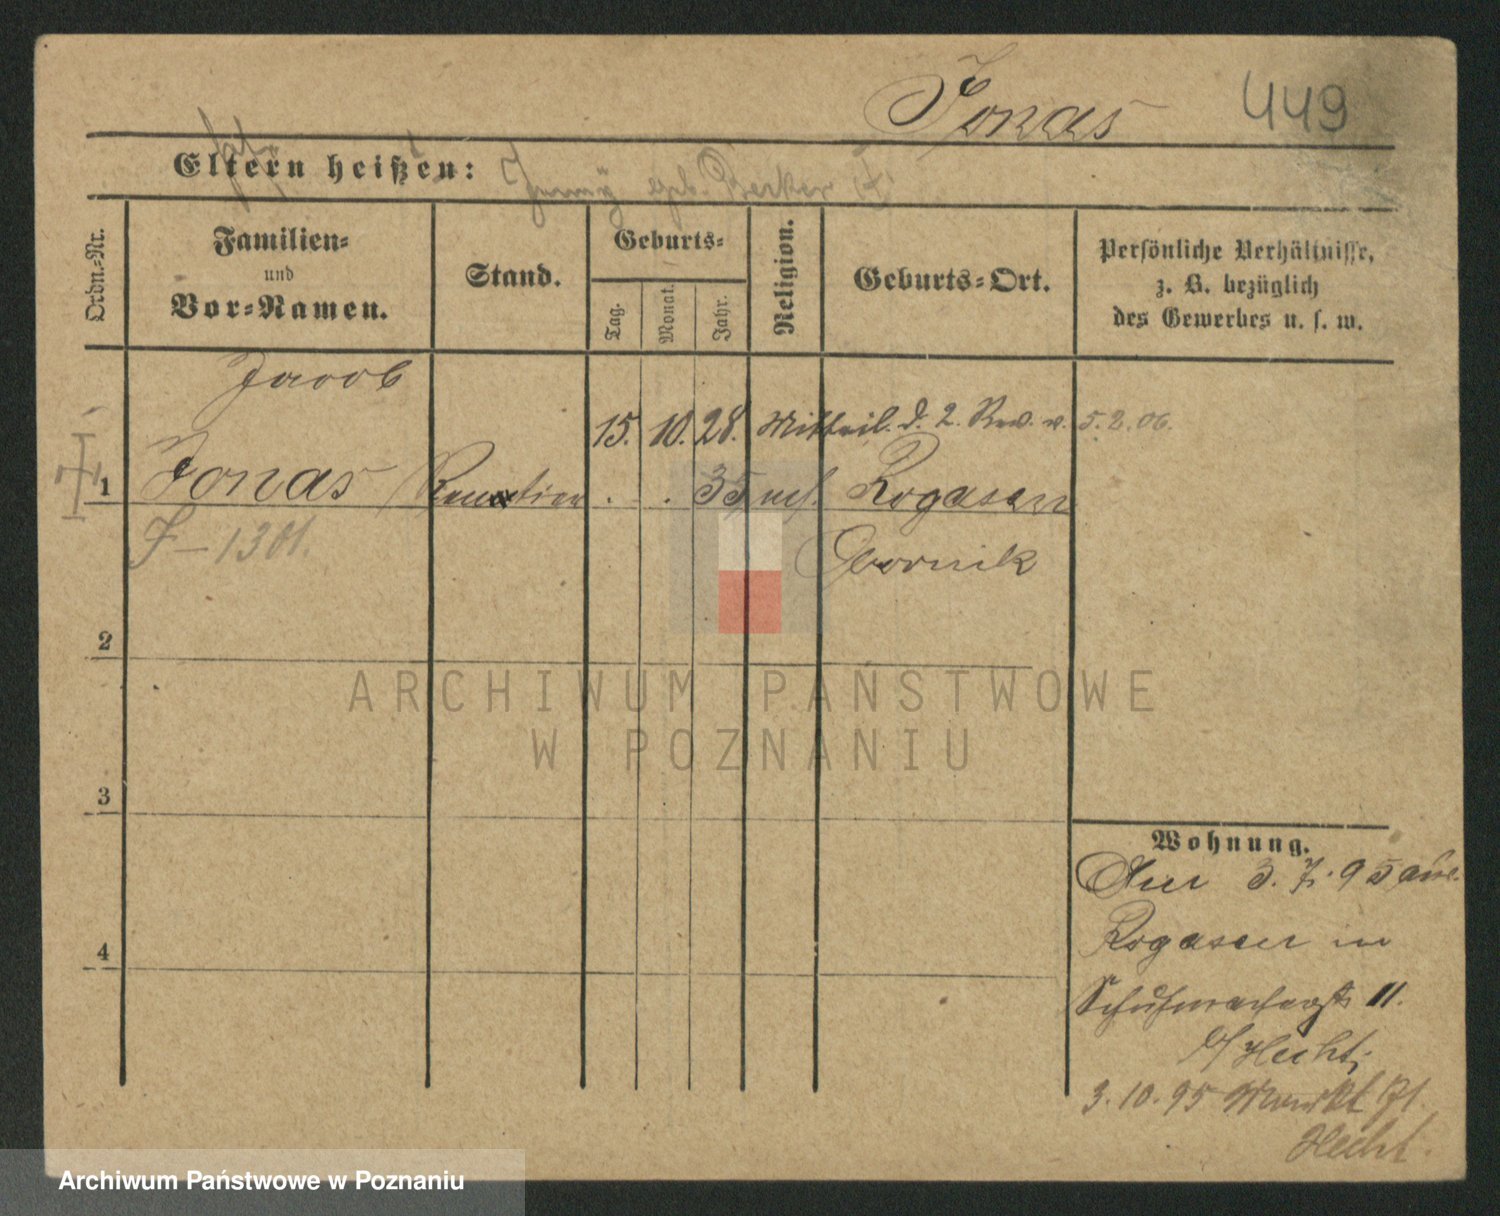 Jonas 449
Eltern heißen: geb. Becker
Ordn.-Nr.
Familien-
und
Vor-Namen.
Stand.
Geburts-
Tag.
Monat.
Jahr.
Religion.
Geburts-Ort.
Persönliche Verhältnisse,
z. B. bezüglich
des Gewerbes u. s. w.
Jacob
15. 10. 28. Mitteil. d. 2. Rev. v. 5. 2. 06.
1 Jonas Rentier . . 35 mos. Rogasen
J-1301. Obornik
2
3
4
Wohnung.
Am 3. 7. 95 aus
Rogasen in
Schuhmacherstr 11.
b/ Hecht;
3. 10. 95 Markt 71.
Hecht.
ARCHIWUM PAŃSTWOWE
W POZNANIU
Archiwum Państwowe w Poznaniu